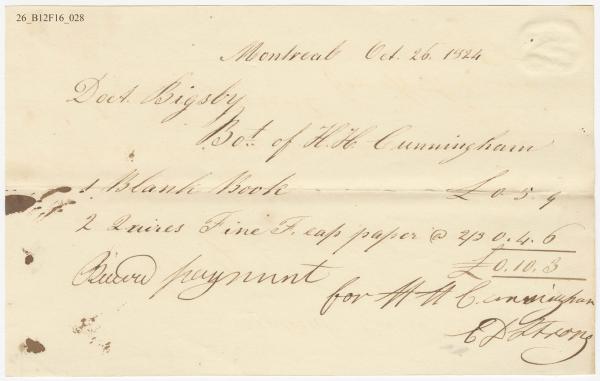 26_B12F16_028
Montreal Oct. 26. 1824
Doct. Bigsby
Bot. of H. H. Cunningham
1 Blank Book £0 5 9
2 Quires Fine F. cap paper @ 2/3 0. 4. 6
£0. 10. 3
Recevd payment
for H H Cunningham
E D Strong